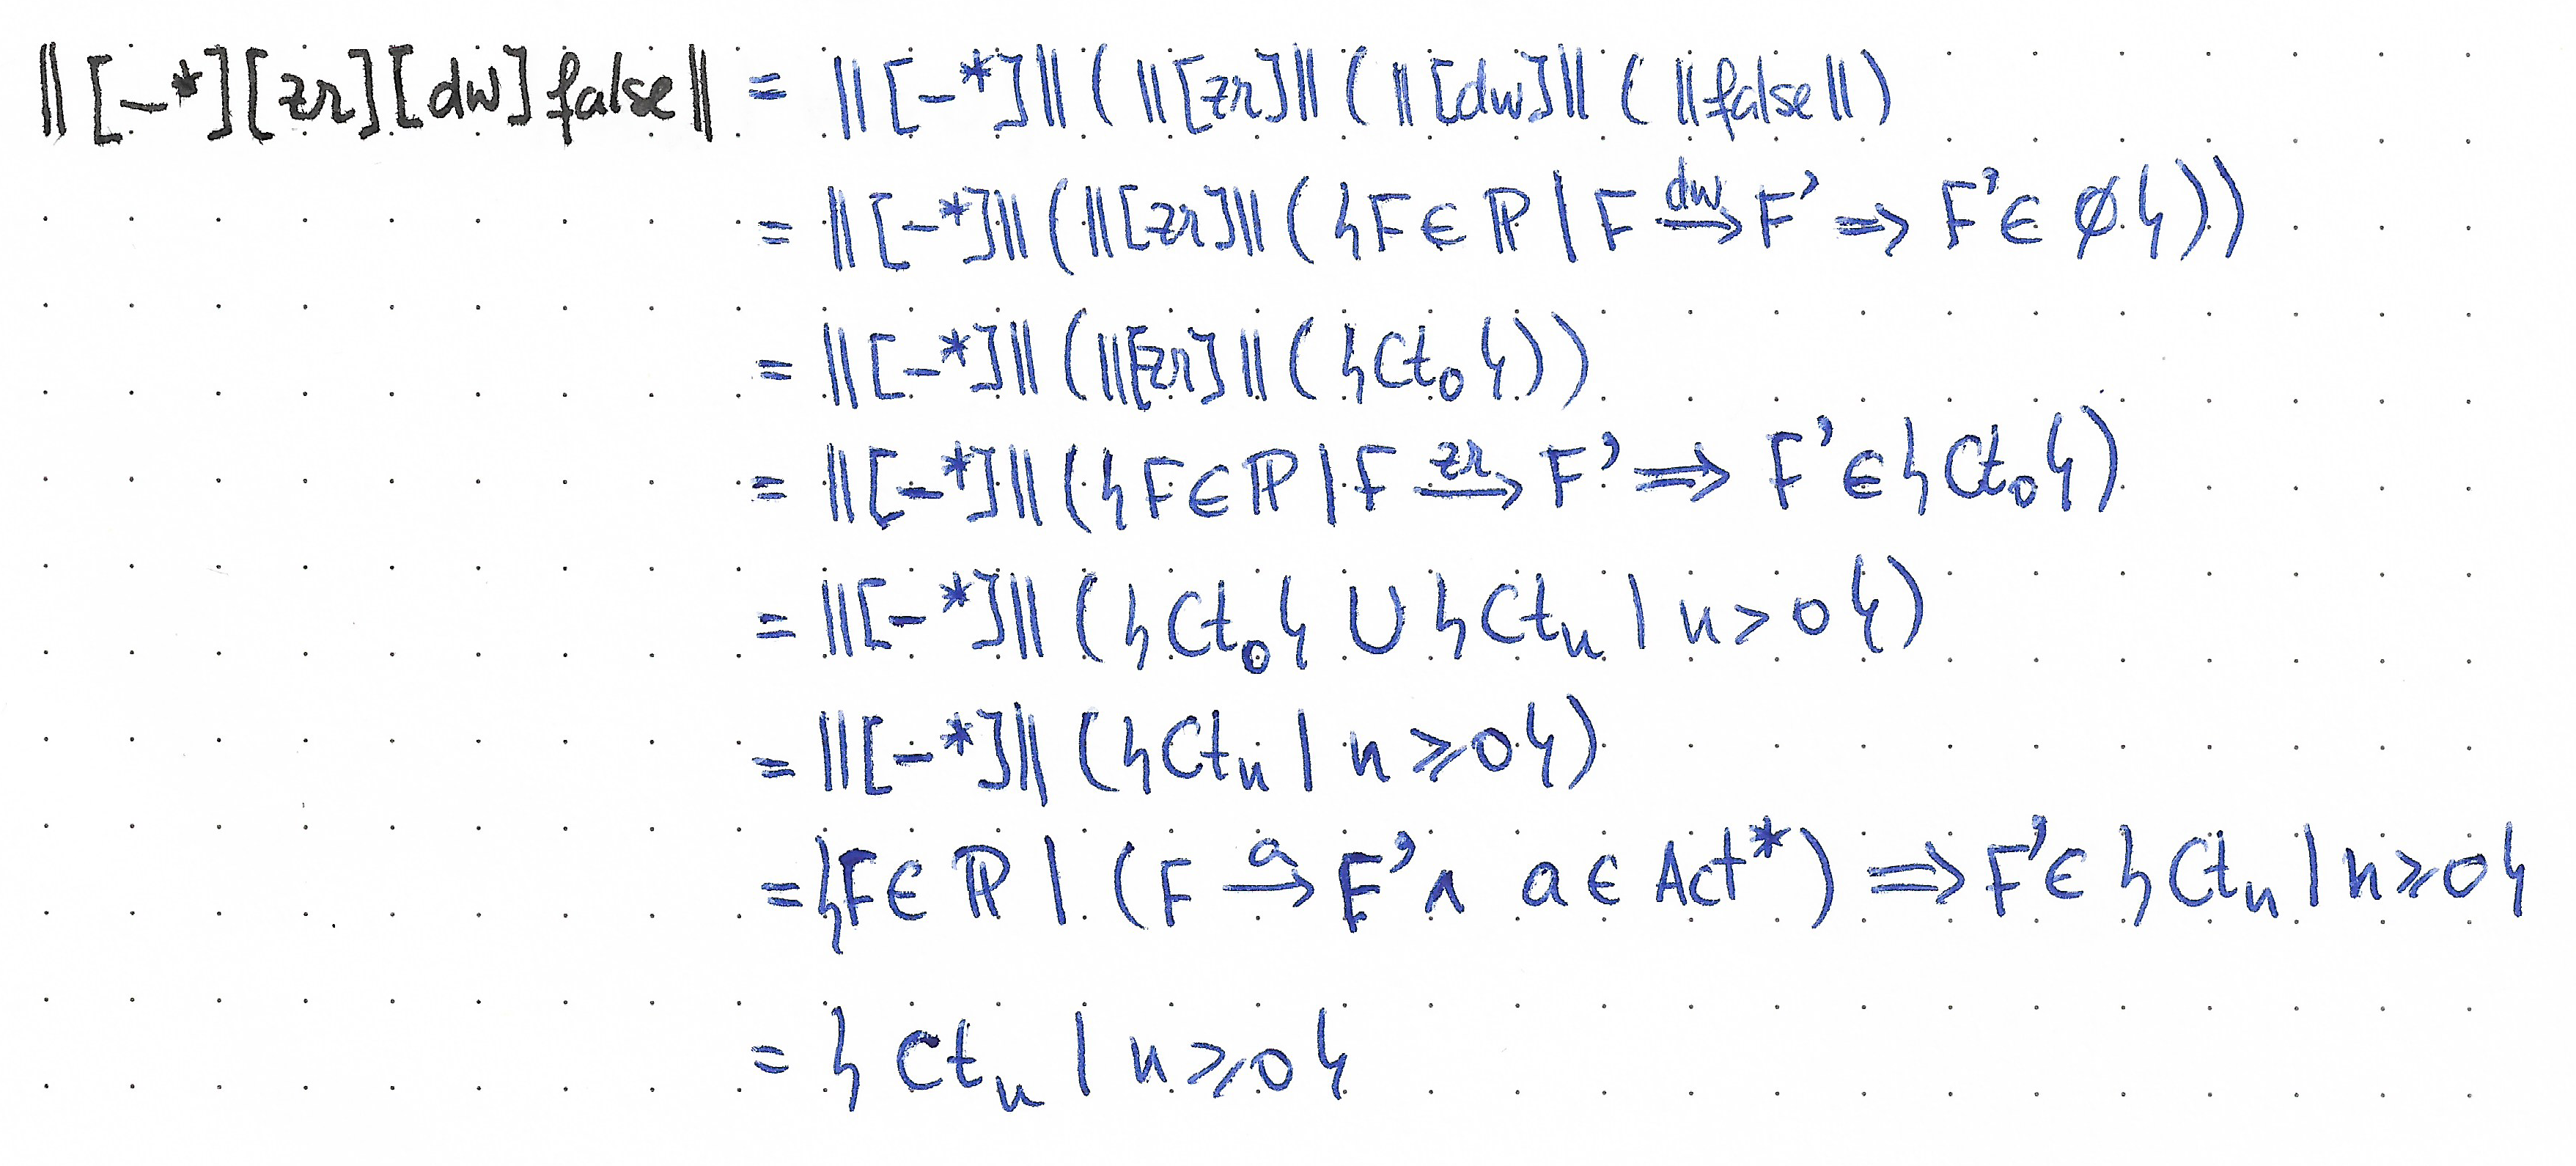 ‖[-*][zr][dw]false‖ = ‖[-*]‖(‖[zr]‖(‖[dw]‖(‖false‖)
= ‖[-*]‖(‖[zr]‖({F ∈ ℙ | F \xrightarrow{dw} F' ⇒ F' ∈ ∅}))
= ‖[-*]‖(‖[zr]‖({Ct₀}))
= ‖[-*]‖({F ∈ ℙ | F \xrightarrow{zr} F' ⇒ F' ∈ {Ct₀})
= ‖[-*]‖({Ct₀} ∪ {Ctₙ | n > 0})
= ‖[-*]‖({Ctₙ | n ⩾ 0})
= {F ∈ ℙ | (F \xrightarrow{a} F' ∧ a ∈ Act*) ⇒ F' ∈ {Ctₙ | n ⩾ 0}
= {Ctₙ | n ⩾ 0}